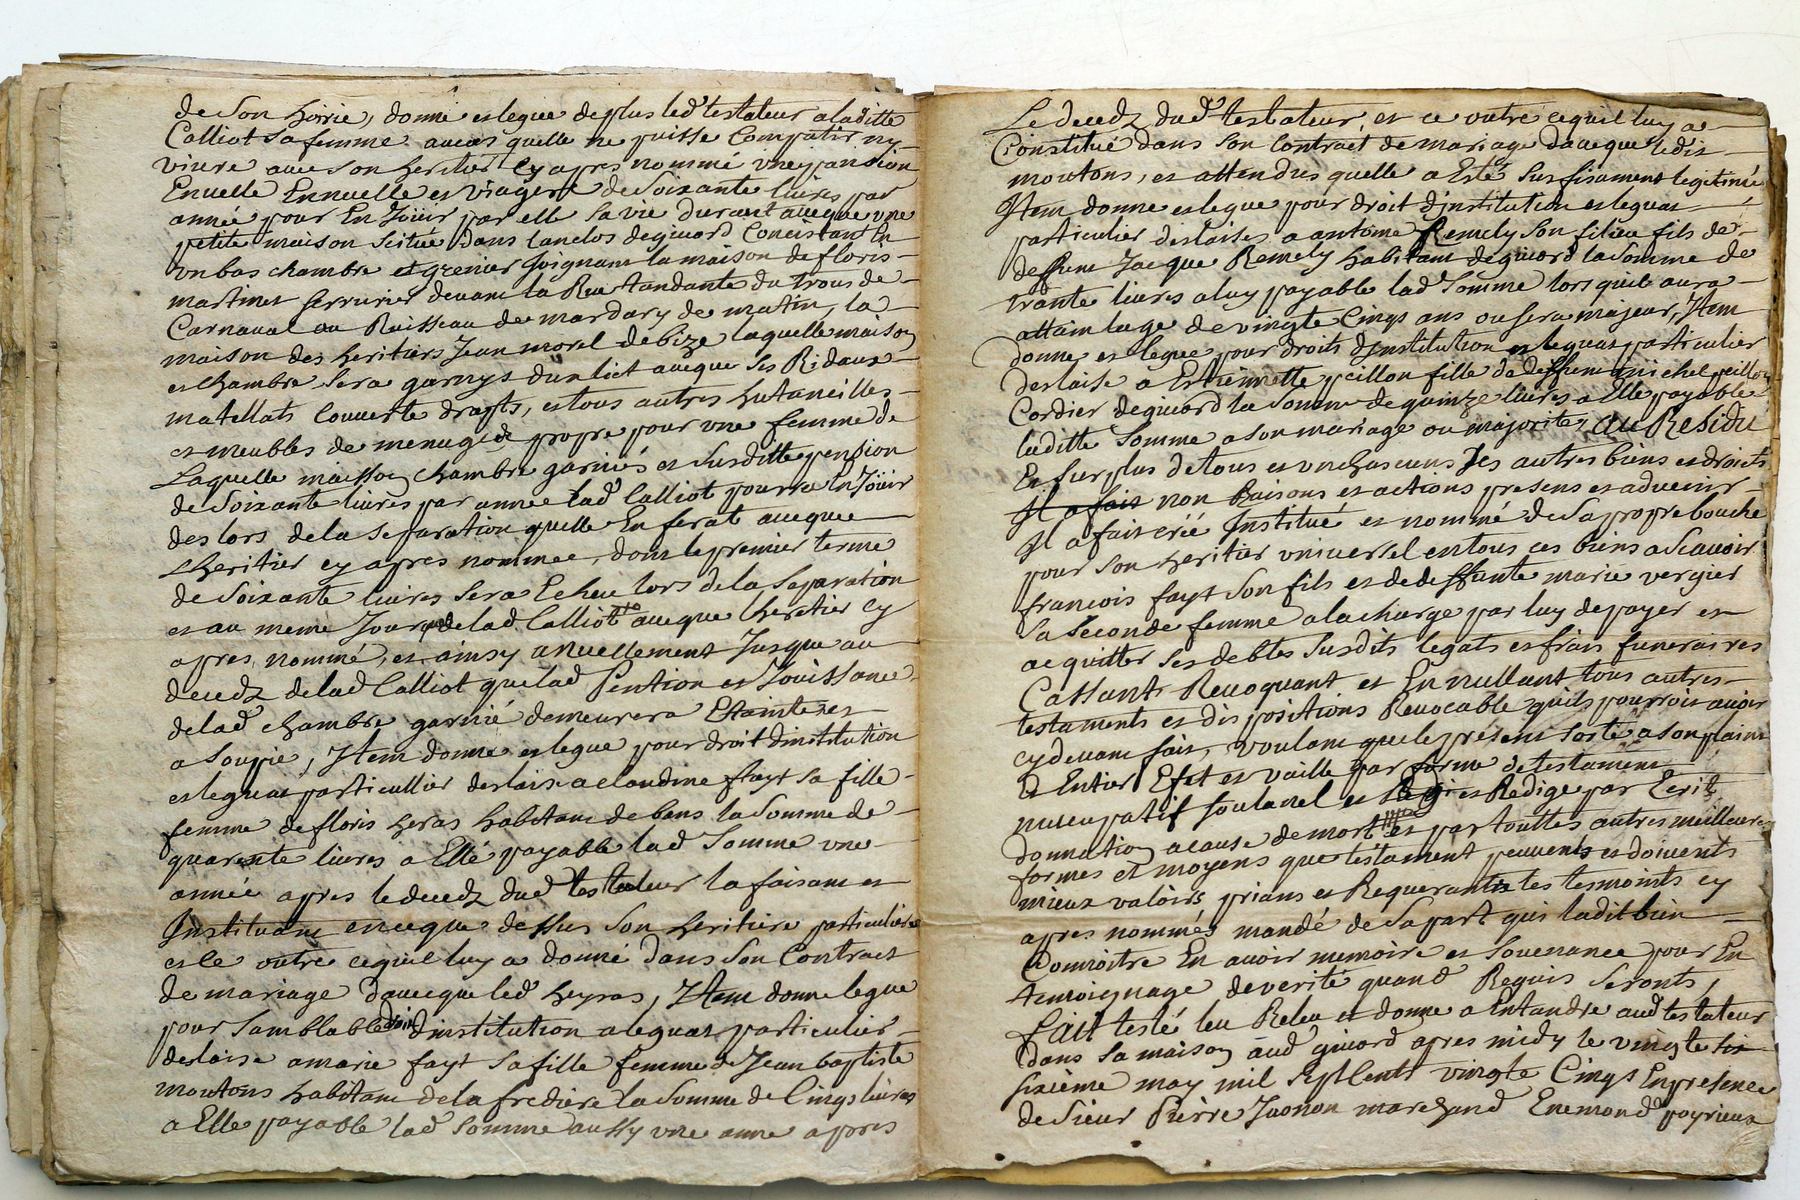 de Son hoirie, donne es legue de plus led' testateur a laditte
Calliot Sa femme au cas quelle ne puisse Compatir ny
viure auec son heritier Cy apres nommé vne pansion
Ennuelle Ennuelle es viagere de Soixante liures par
année pour En Joüir par elle sa vie durant aueque vne
petite maison Scitüe dans lanclos de giuord Concistant En
vn bas chambre et grenier Joignant la maison de floris
martinet serrurier deuant la Rue tandante du trous de
Carnaual au Ruisseau de mardary de matin, la
maison des heritiers Jean morel de bize laquelle maison
es chambre sera garnys dun lict aueque ses Ridaux
matellats Couuerte drapts, es tous autres hutancilles
es meubles de menage propre pour vne femme de
Laquelle maison chambre garniés es susditte pension
de Soixante liures par année lad' Calliot pourra En Joüir
des lors de la separation quelle En ferat aueque
Lheritier cy apres nommée, dont le premier terme
de Soixante liures sera Echeu lors de la Separation
es au meme Jour de lad' Calliot aueque lheretier Cy
apres nommé, es ainsy annuellement Jusque au
decedz de lad' Calliot que lad' Pention es Jouissance
de lad' chambre garnié demeurera Etainte es
asoupie, Jtem donne es legue pour droit dinstitution
es leguat particullier deslaise a claudine fayt sa fille
femme de floris heras habitant de bans la Somme de
quarente liures a Ellé payable lad' Somme vne
année apres le decedz dud' testateur la faisant es
Jnstituant en ce que dessus Son heritiere particuliere
es le outre ce quil luy a donné dans Son Contract
de mariage daueque led' heyras, Jtem donne legue
pour Samblable droit dinstitution a leguat particulier
deslaise a marie fayt sa fille femme de Jean baptiste
moutons habitant de la frediere la Somme de Cinqs liures
a Elle payable lad' Somme aussy vne anne apres
Le decedz dud' testateur, es ce outre ce quil luy a
Constitué dans son Contract de mariage daueque ledis
moutons, es attendus quelle a Esté Suffisament legitimée
Jtem donne es legue pour droit dinstitution es leguat
particulier deslaises a antoine Remely Son filieu fils de
deffunt Jacque Remely habitant de giuord la Somme de
trante liures a luy payable lad' Somme lors quil aura
attain lage de vingte Cinqs ans ou sera majeur, Jtem
donne es legue pour droits dJnstitution es leguat particulier
deslaise a Estiennette peillon fille de deffunt michel peillon
Cordier de giuord la Somme de quinze liures a Elle payable
laditte Somme a son mariage ou majorité, au Residu
Es surplus de tous es vn chascuns ses autres biens es droicts
Jl a fait non Raisons es actions presens es aduenir
Jl a fait créé Jnstitué es nommé de Sa propre bouche
pour Son heritier vniuersel en tous ces biens a Scauoir
francois fayt Son fils es de deffunte marie vergier
Sa Seconde femme a la charge par luy de payer es
acquitter ses debtes susdits legats es frais funeraires
Cassants Reuoquant et En nullant tous autres
testaments es dispositions Reuocable quils pourroit auoir
cy deuant fait, voulant que le présent sorte a son plains
Es Entier Efet es vaille par forme de testament
nuncupatif es Redige par Ecrit
donnation a cause de mort es par touttes autres meilleures
formes et moyens que testament peuuents es doiuents
mieux valoirs prians es Requerants les tesmoints cy
apres nommés mandé de Sa part quis ladit bien
Connoitre En auoir memoire es Souenance pour En
temoignage de verité quand Requis Seronts,
fait testé leu Releu et donne a Entandre aud' testateur
dans sa maison aud' giuord apres midy le vingte six
sixième may mil Sept Cents vingte Cinqs En presence
de Sieur Pierre Juonon marchand Enemond payrieux